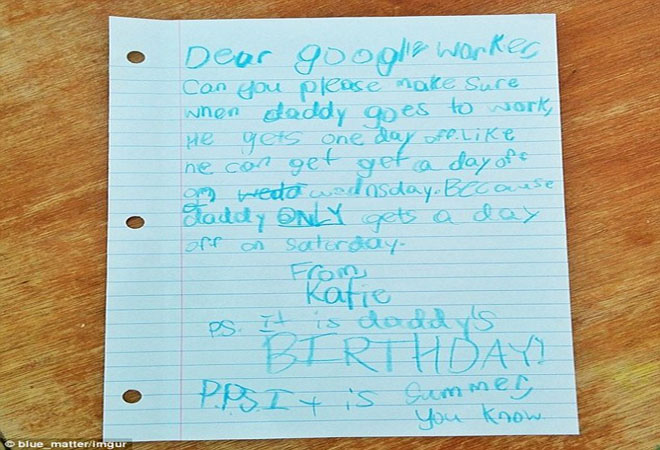 Dear google worker,
Can you please make sure
when daddy goes to work,
He gets one day off. Like
he can get get a day off
on wedd wednsday. Because
daddy ONLY gets a day
off on saturday.
From,
Katie
P.S. It is daddy's
BIRTHDAY!
P.P.S. It is summer,
you know
© blue_matter/imgur